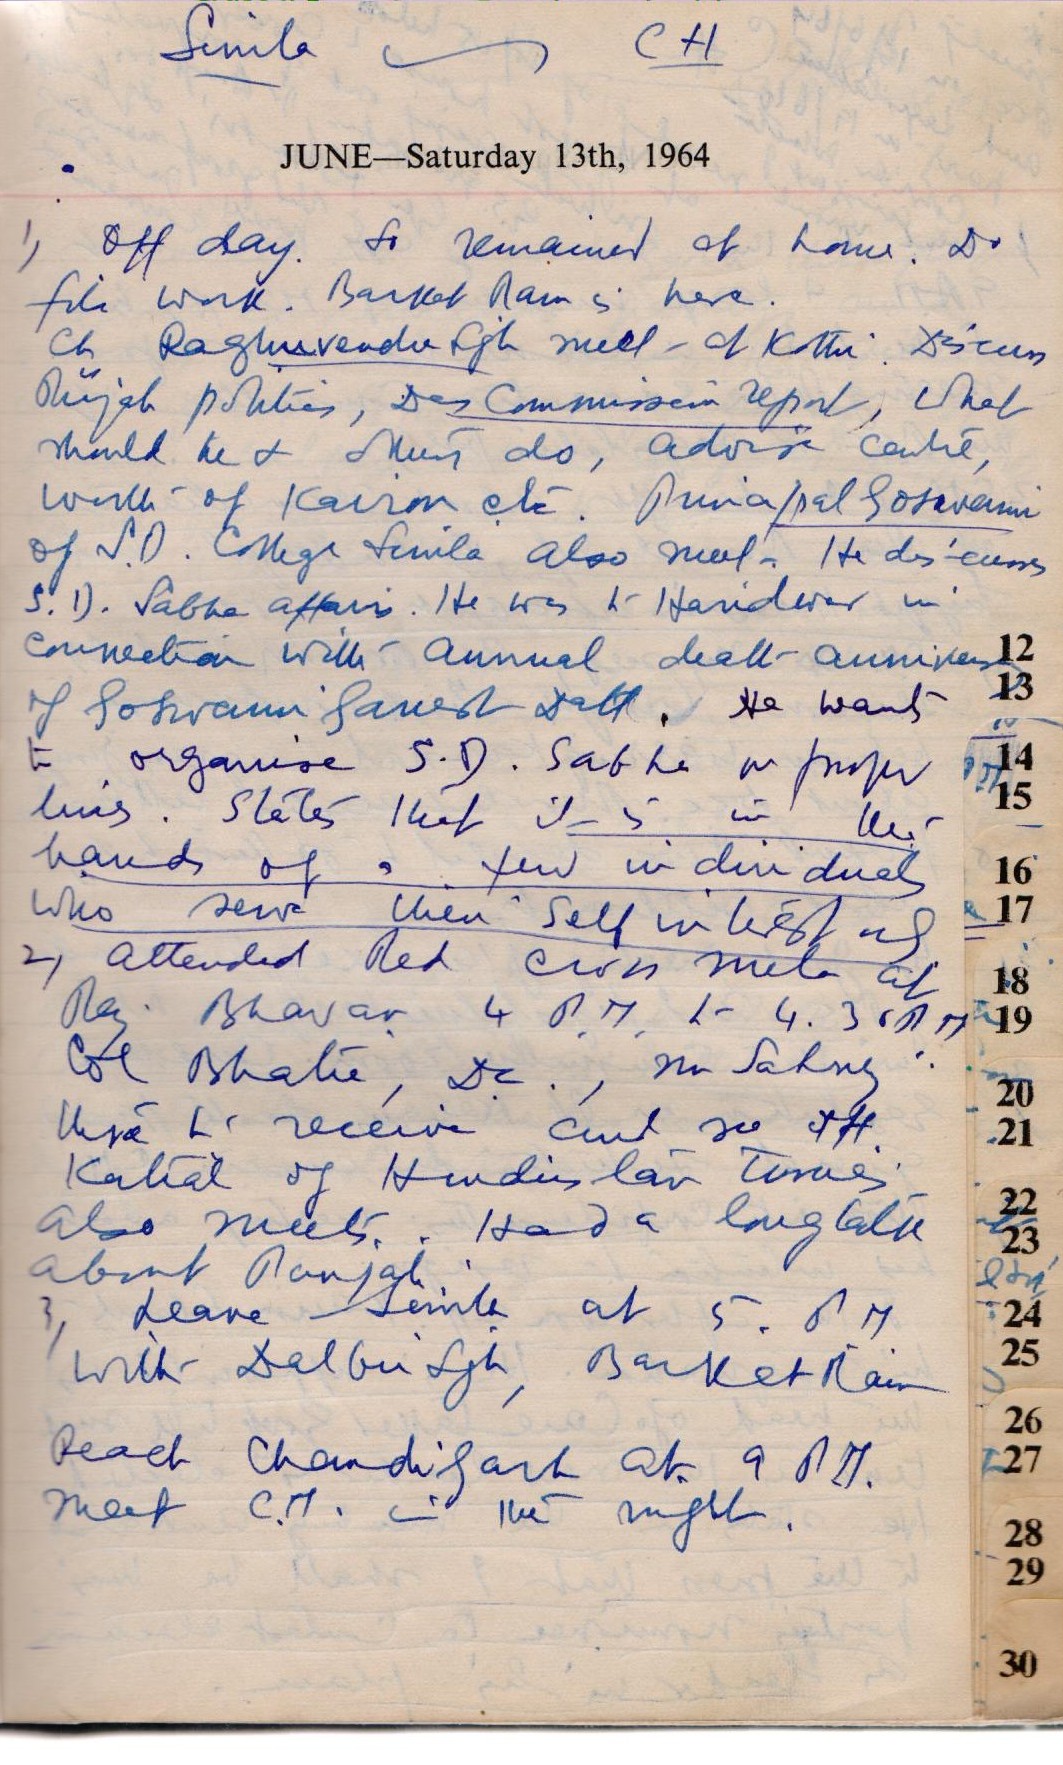 Simla CH
JUNE—Saturday 13th, 1964
1) Off day. So remained at home. Do
file work. Barket Ram is here.
Ch Raghuvendra Sgh meet - at Kothi. Discuss
Punjab politics, Das Commission report, what
should he & others do, advise centre,
work of Kairon etc. Principal Goswami
of S.D. College Simla also meet. He discusses
S.D. Sabha affairs. He was to Haridwar in
connection with annual death annivers
of Goswami Ganesh Datt. He wants
to organise S.D. Sabha on proper
lines. States that it is in the
hands of a few individuals
who serve their self interest only
2) Attended Red Cross mela at
Raj Bhavan 4 P.M. to 4.30 P.M
Col Bhatia, D.C., Mr Sahney
there to receive and see off.
Katial of Hindustan Times
also meets. Had a long talk
about Punjab.
3) Leave Simla at 5. P M
with Dalbir Sgh, Barket Ram
Reach Chandigarh at 9 P.M.
meet C.M. in the night.
12
13
14
15
16
17
18
19
20
21
22
23
24
25
26
27
28
29
30